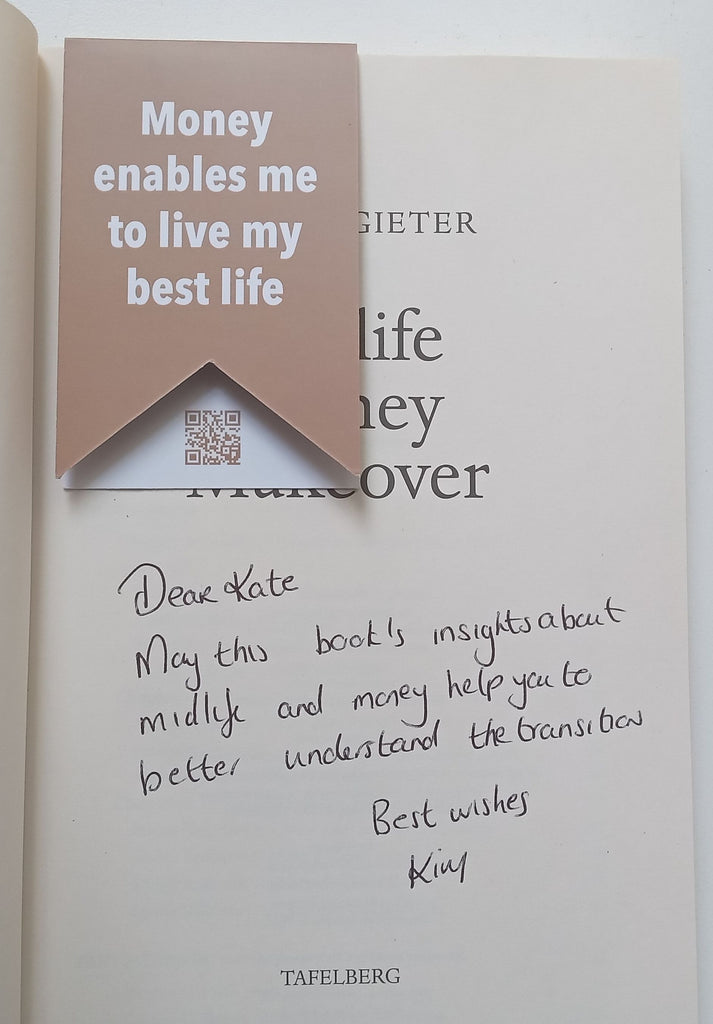 Money
enables me
to live my
best life
GIETER
life
ney
Makeover
Dear Kate
May this book's insights about
midlife and money help you to
better understand the transition
Best wishes
Kim
TAFELBERG